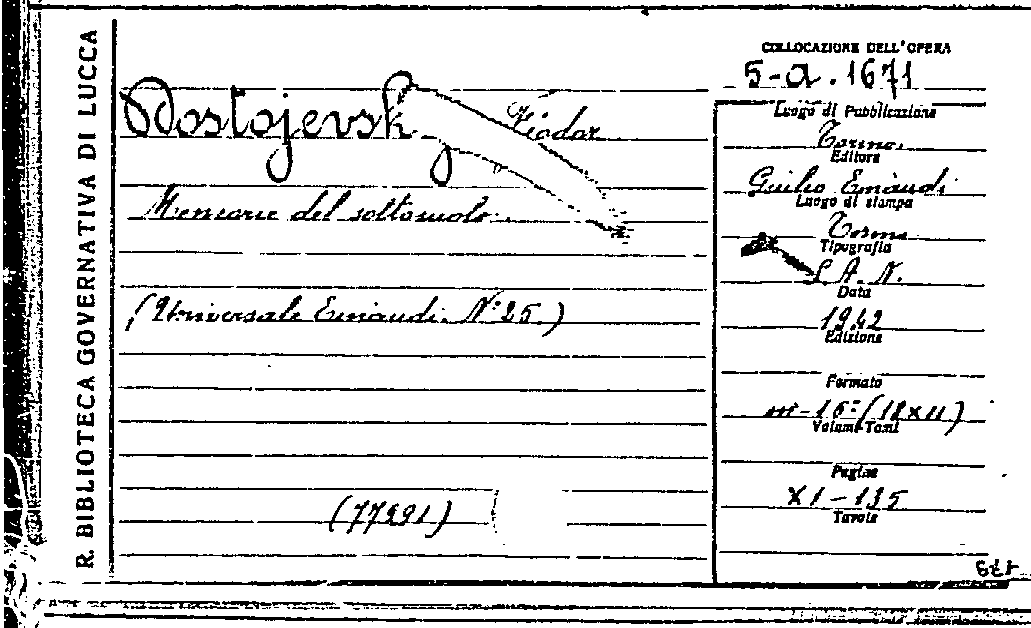 R. BIBLIOTECA GOVERNATIVA DI LUCCA
COLLOCAZIONE DELL'OPERA
5-a.1671
Dostojevsky Fiódor
Memorie del sottosuolo.
(Universale Einaudi. N° 25.)
(77991)
Luogo di Pubblicazione
Torino.
Editore
Giulio Einaudi
Luogo di stampa
Torino
Tipografia
S. A. N.
Data
1942
Edizione
Formato
in-16° (18x11)
Volumi-Tomi
Pagine
XI-135
Tavole